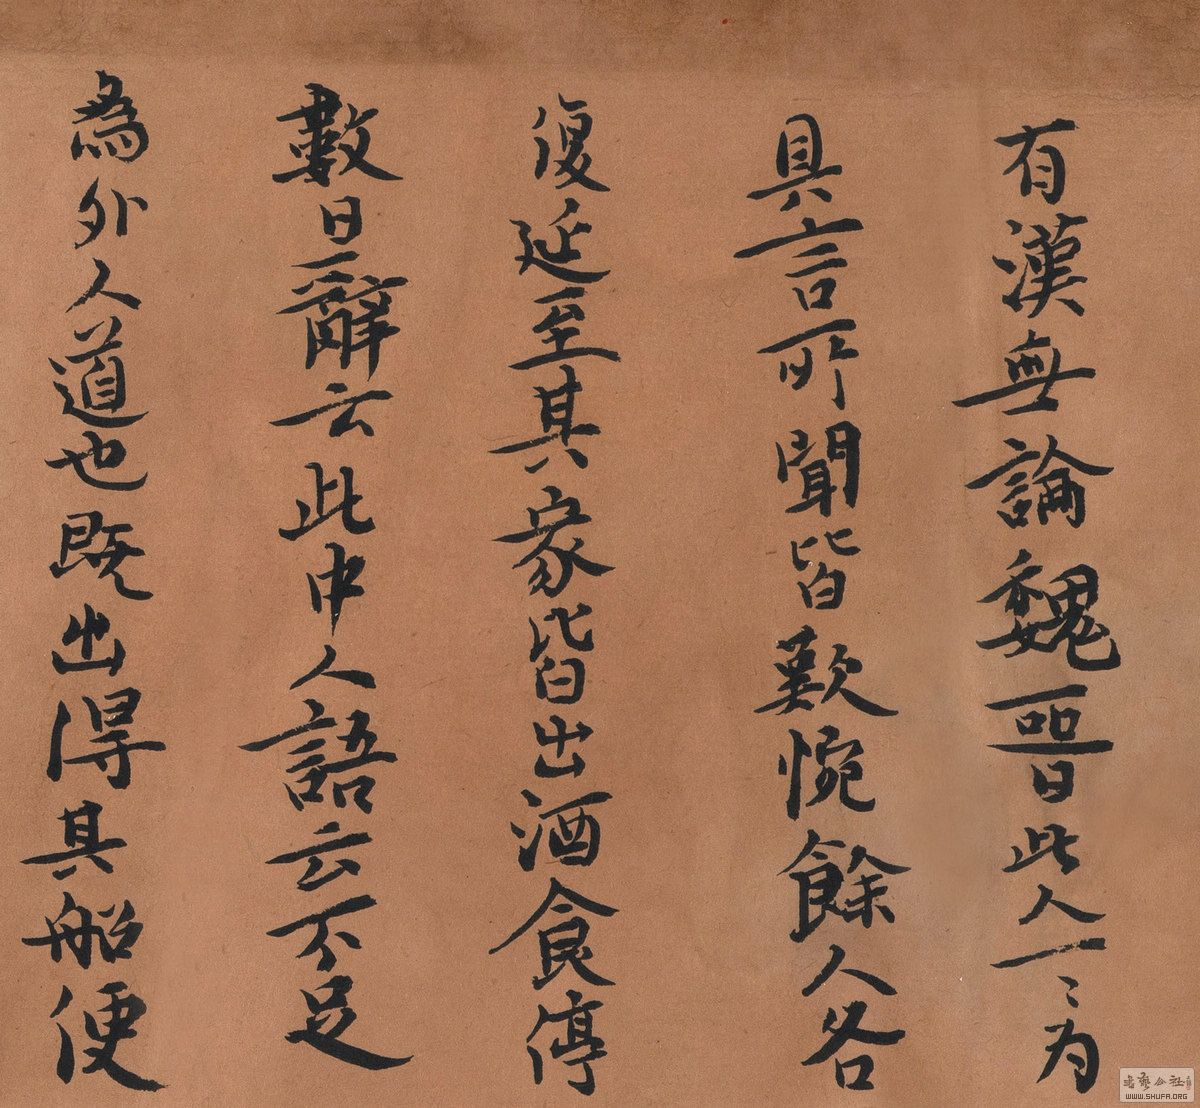 有漢無論魏晉此人一〻為
具言所聞皆歎惋餘人各
復延至其家皆出酒食停
數日辭云此中人語云不足
為外人道也既出得其船便
書藝公社
WWW.SHUFA.ORG